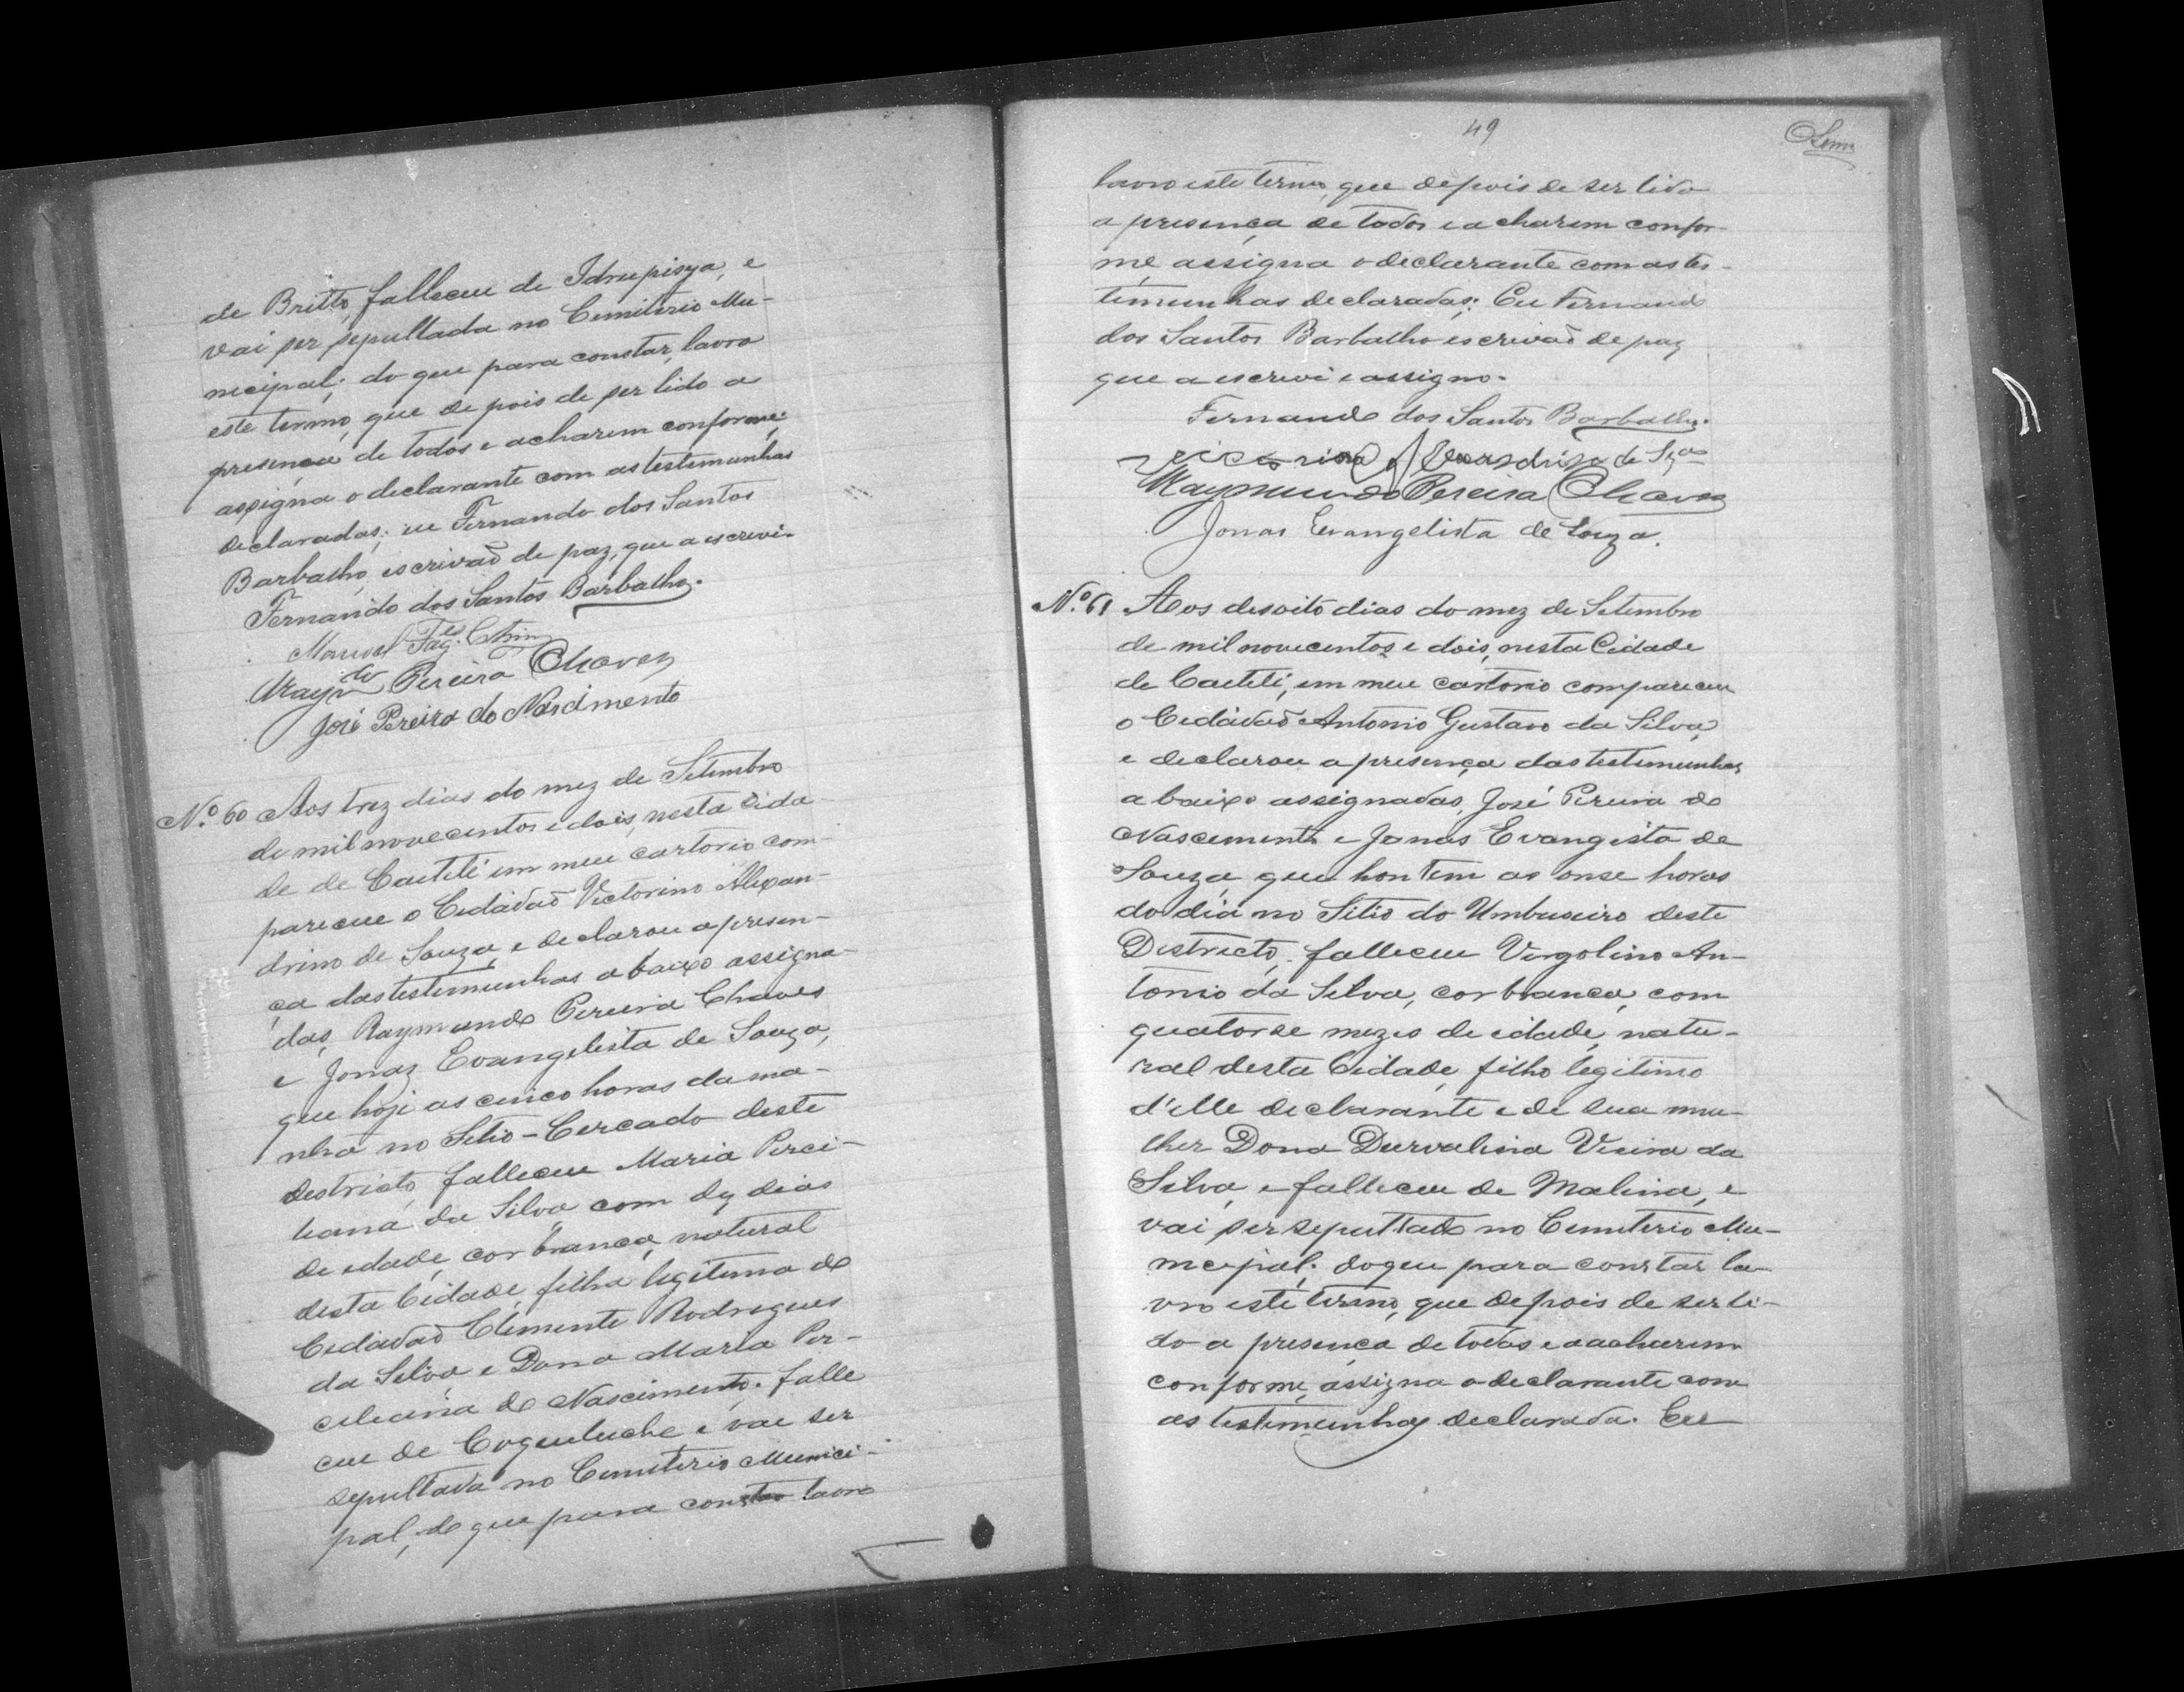 de Britto, falleceu de Idrupisya, e
vai ser sepultada no Cemiterio Mu-
nicipal; do que para constar, lavro
este termo, que depois de ser lido a
presença de todos e acharem conforme,
assigna o declarante com as testemunhas
declaradas; eu Fernando dos Santos
Barbalho, escrivaõ de paz, que a escrevi.
Fernando dos Santos Barbalho.
Manoel
Raym.do Pereira Chaves
José Pereira do Nascimento
N.º 60 Aos trez dias do mez de Setembro
de mil novecentos e dois, nesta cida-
de de Caeteté em meu cartorio com-
pareceu o Cidadaõ Victorino Alexan-
drino de Souza, e declarou a presen-
ça das testemunhas abaixo assigna-
das, Raymundo Pereira Chaves
e Jonas Evangelista de Souza,
que hoje as cinco horas da ma-
nhã no Sitio-Cercado deste
destricto, falleceu Maria Perci-
liana da Silva com dez dias
de edade, cor branca, natural
desta Cidade, filha legitima do
Cidadaõ Clemente Rodrigues
da Silva e Dona Maria Per-
ciliana do Nascimento. falle
ceu de Coqueluche e vae ser
sepultada no Cemiterio Munici-
pal, do que para constar lavro
49
lavro este termo, que depois de ser lido
a presença de todos e acharem confor-
me assigna o declarante com as tes-
timunhas declaradas; Eu Fernando
dos Santos Barbalho escrivaõ de paz
que a escrevi e assigno.
Fernando dos Santos Barbalho.
de Sza
Raymundo Pereira Chaves
Jonas Evangelista de Souza.
N.º 61 Aos desoito dias do mez de Setembro
de mil novecentos e dois, nesta Cidade
de Caeteté, em meu cartorio compareceu
o Cidadaõ Antonio Gustavo da Silva,
e declarou a presença das testemunhas
abaixo assignadas, José Pereira do
Nascimento e Jonas Evangista de
Souza, que hontem as onse horas
do dia no Sitio do Umbuseiro deste
Districto, falleceu Virgolino An-
tonio da Silva, cor branca, com
quatorse mezes de edade, natu-
ral desta Cidade, filho legitimo
d'elle declarante e de sua mu-
lher Dona Durvalina Vieira da
Silva, e falleceu de Malina, e
vai ser sepultado no Cemiterio Mu-
nicipal; do que para constar la-
vro este termo, que depois de ser li-
do a presença de todos e acharem
conforme, assigna o declarante com
as testemunhas declarada. Eu